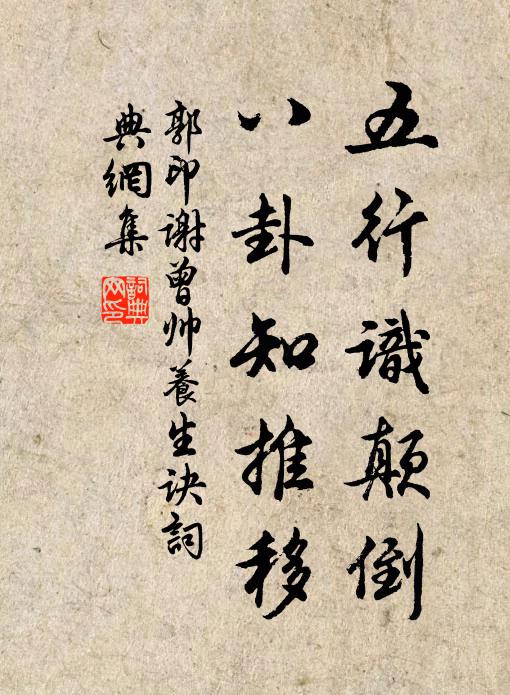 五行識顛倒
八卦知推移
郭印謝曾帅養生诀詞
典網集
詞典網印